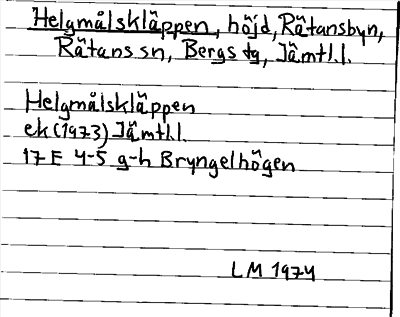 Helgmålskläppen, höjd, Rätansbyn,
Rätans sn, Bergs tg, Jämtl.l.
Helgmålskläppen
ek (1973) Jämtl.l.
17 E 4-5 g-h Bryngelhögen
LM 1974